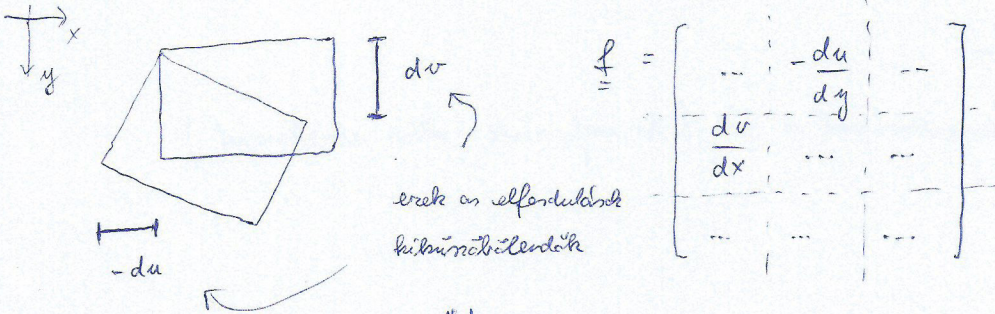 x
y
dv
ezek az elfordulások
kiküszöbölendők
-du
f = [ ... -du/dy ...
dv/dx ... ...
... ... ... ]